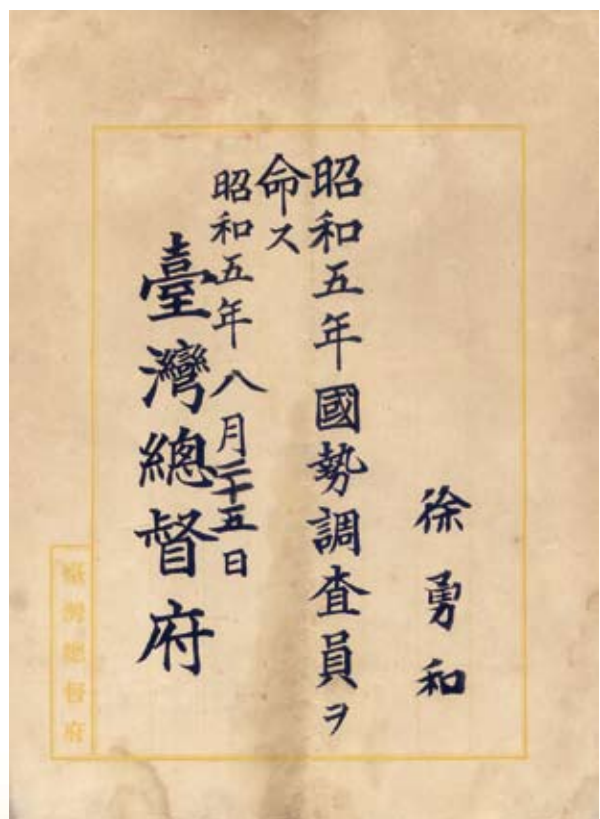 徐勇和
昭和五年國勢調查員ヲ
命ス
昭和五年八月二十五日
臺灣總督府
臺灣總督府